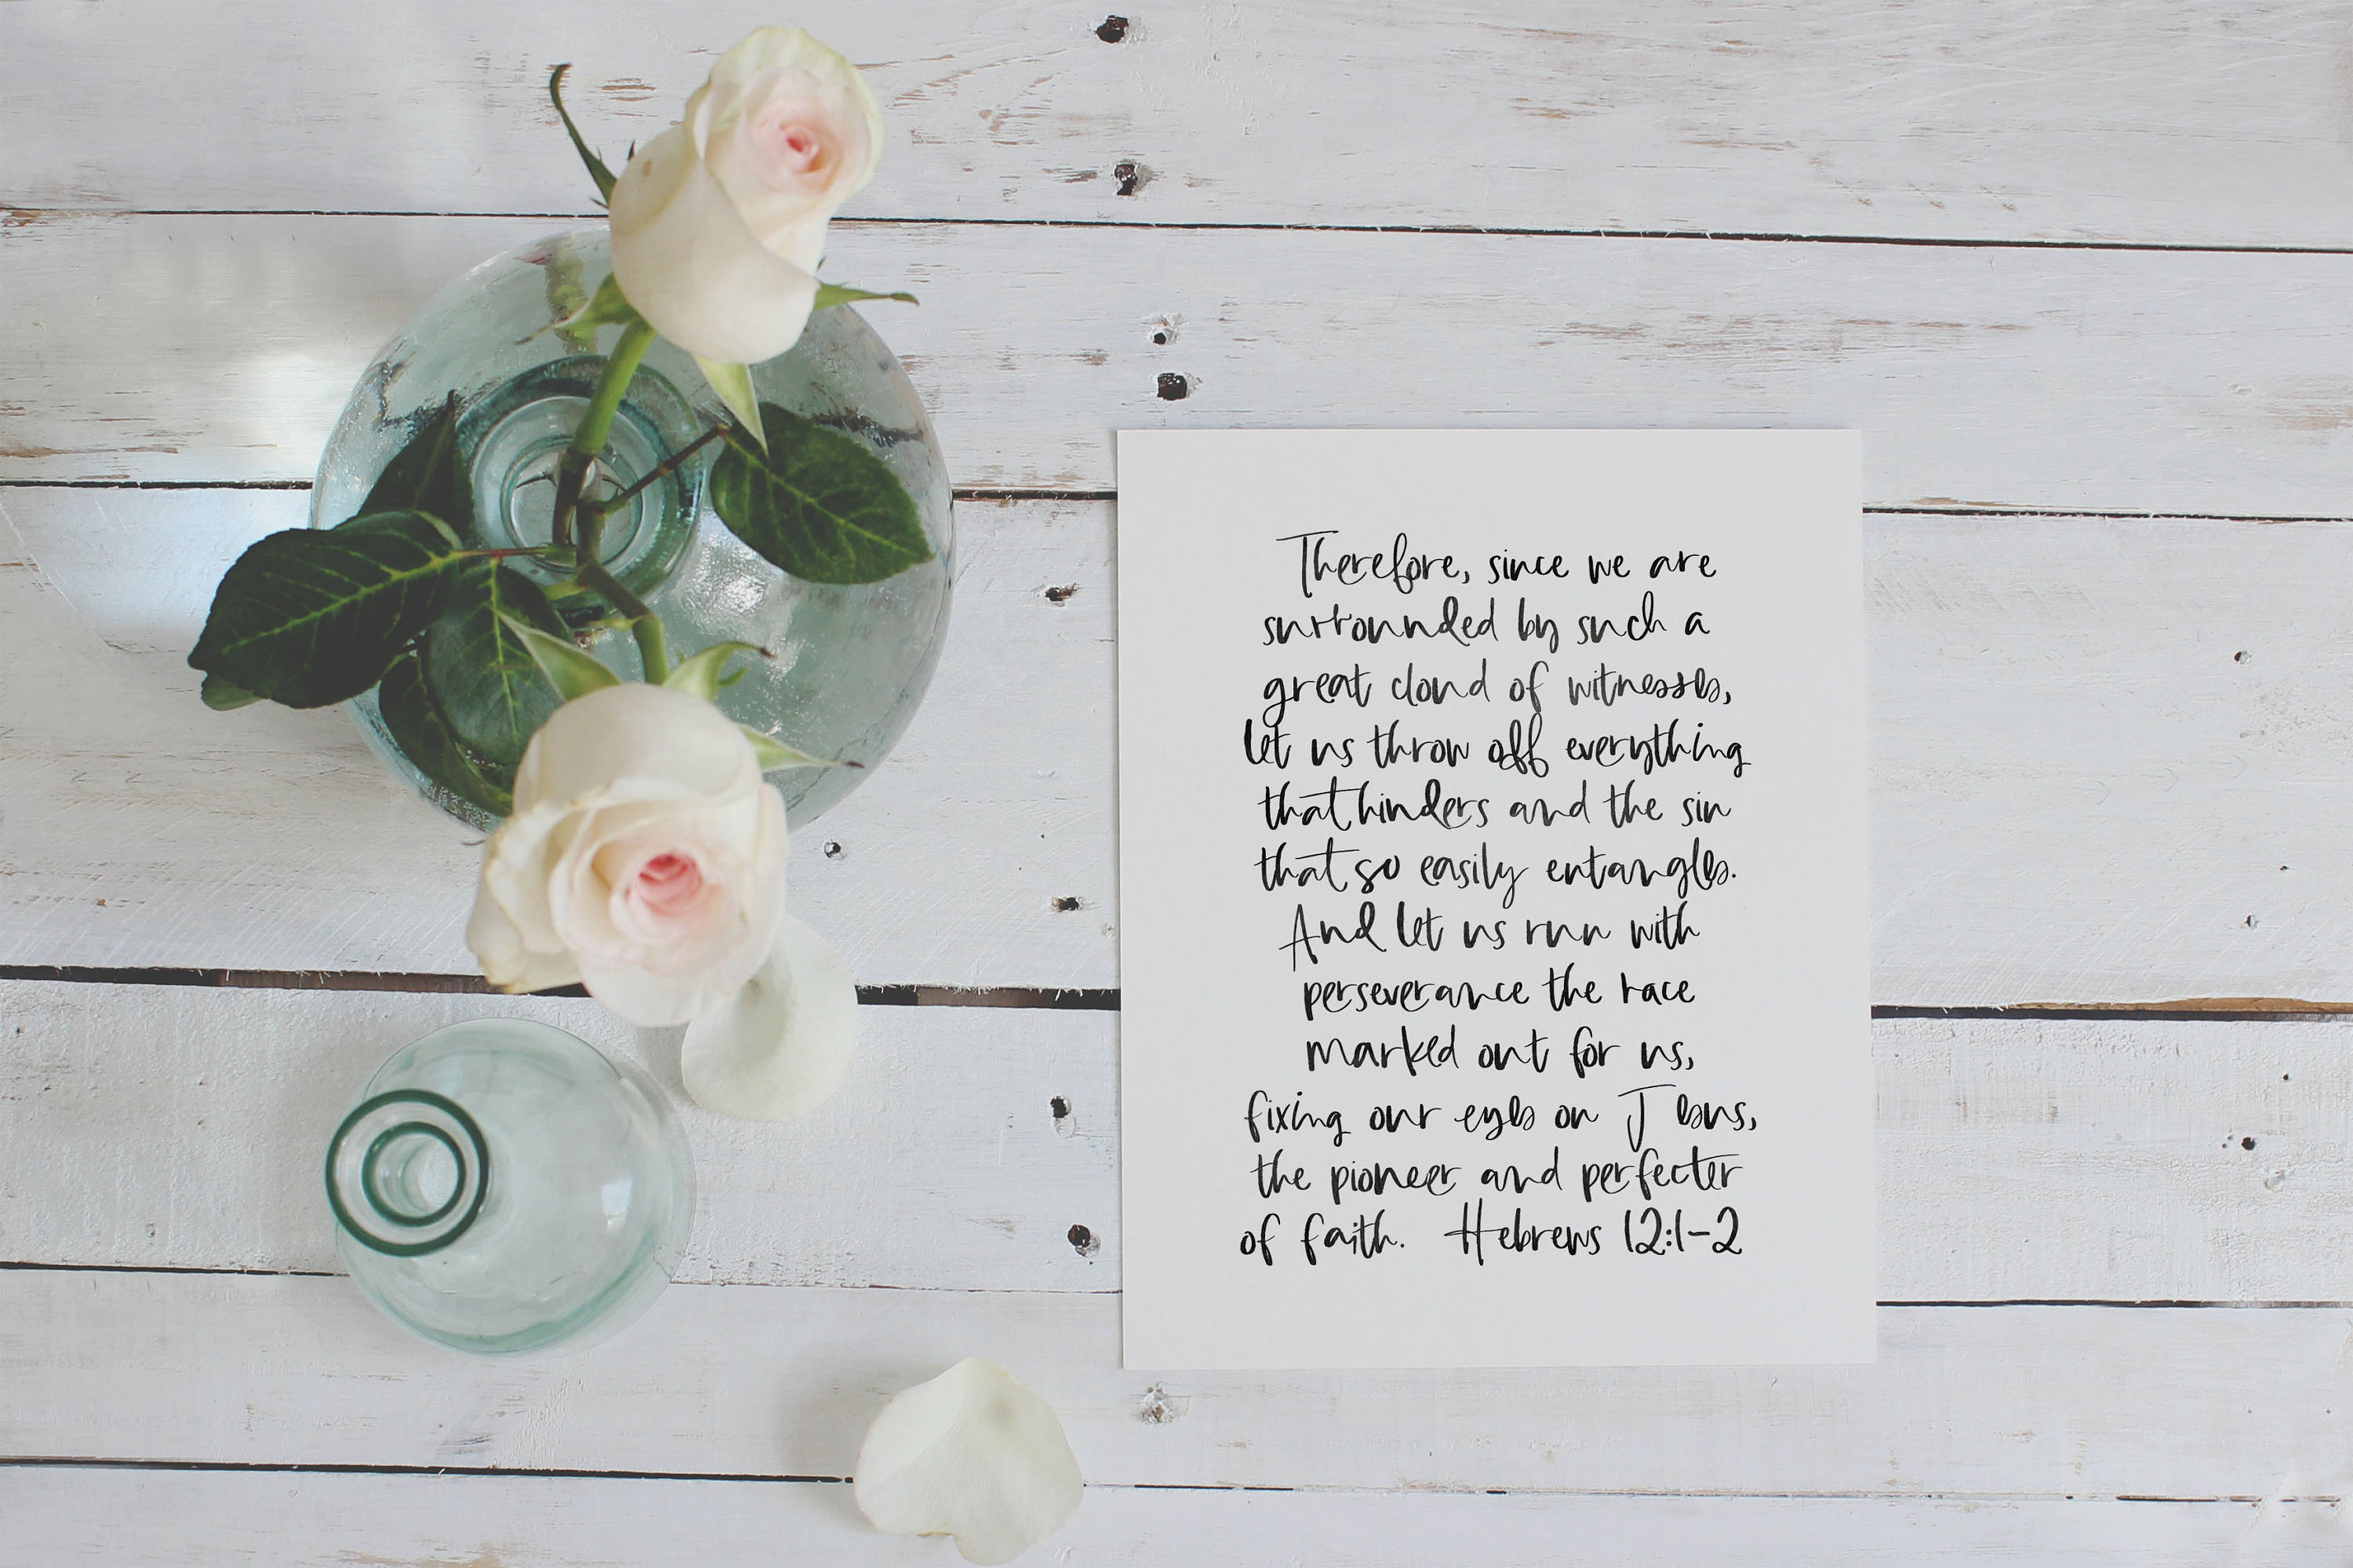 Therefore, since we are
surrounded by such a
great cloud of witnesses,
let us throw off everything
that hinders and the sin
that so easily entangles.
And let us run with
perseverance the race
marked out for us,
fixing our eyes on Jesus,
the pioneer and perfecter
of faith. Hebrews 12:1-2